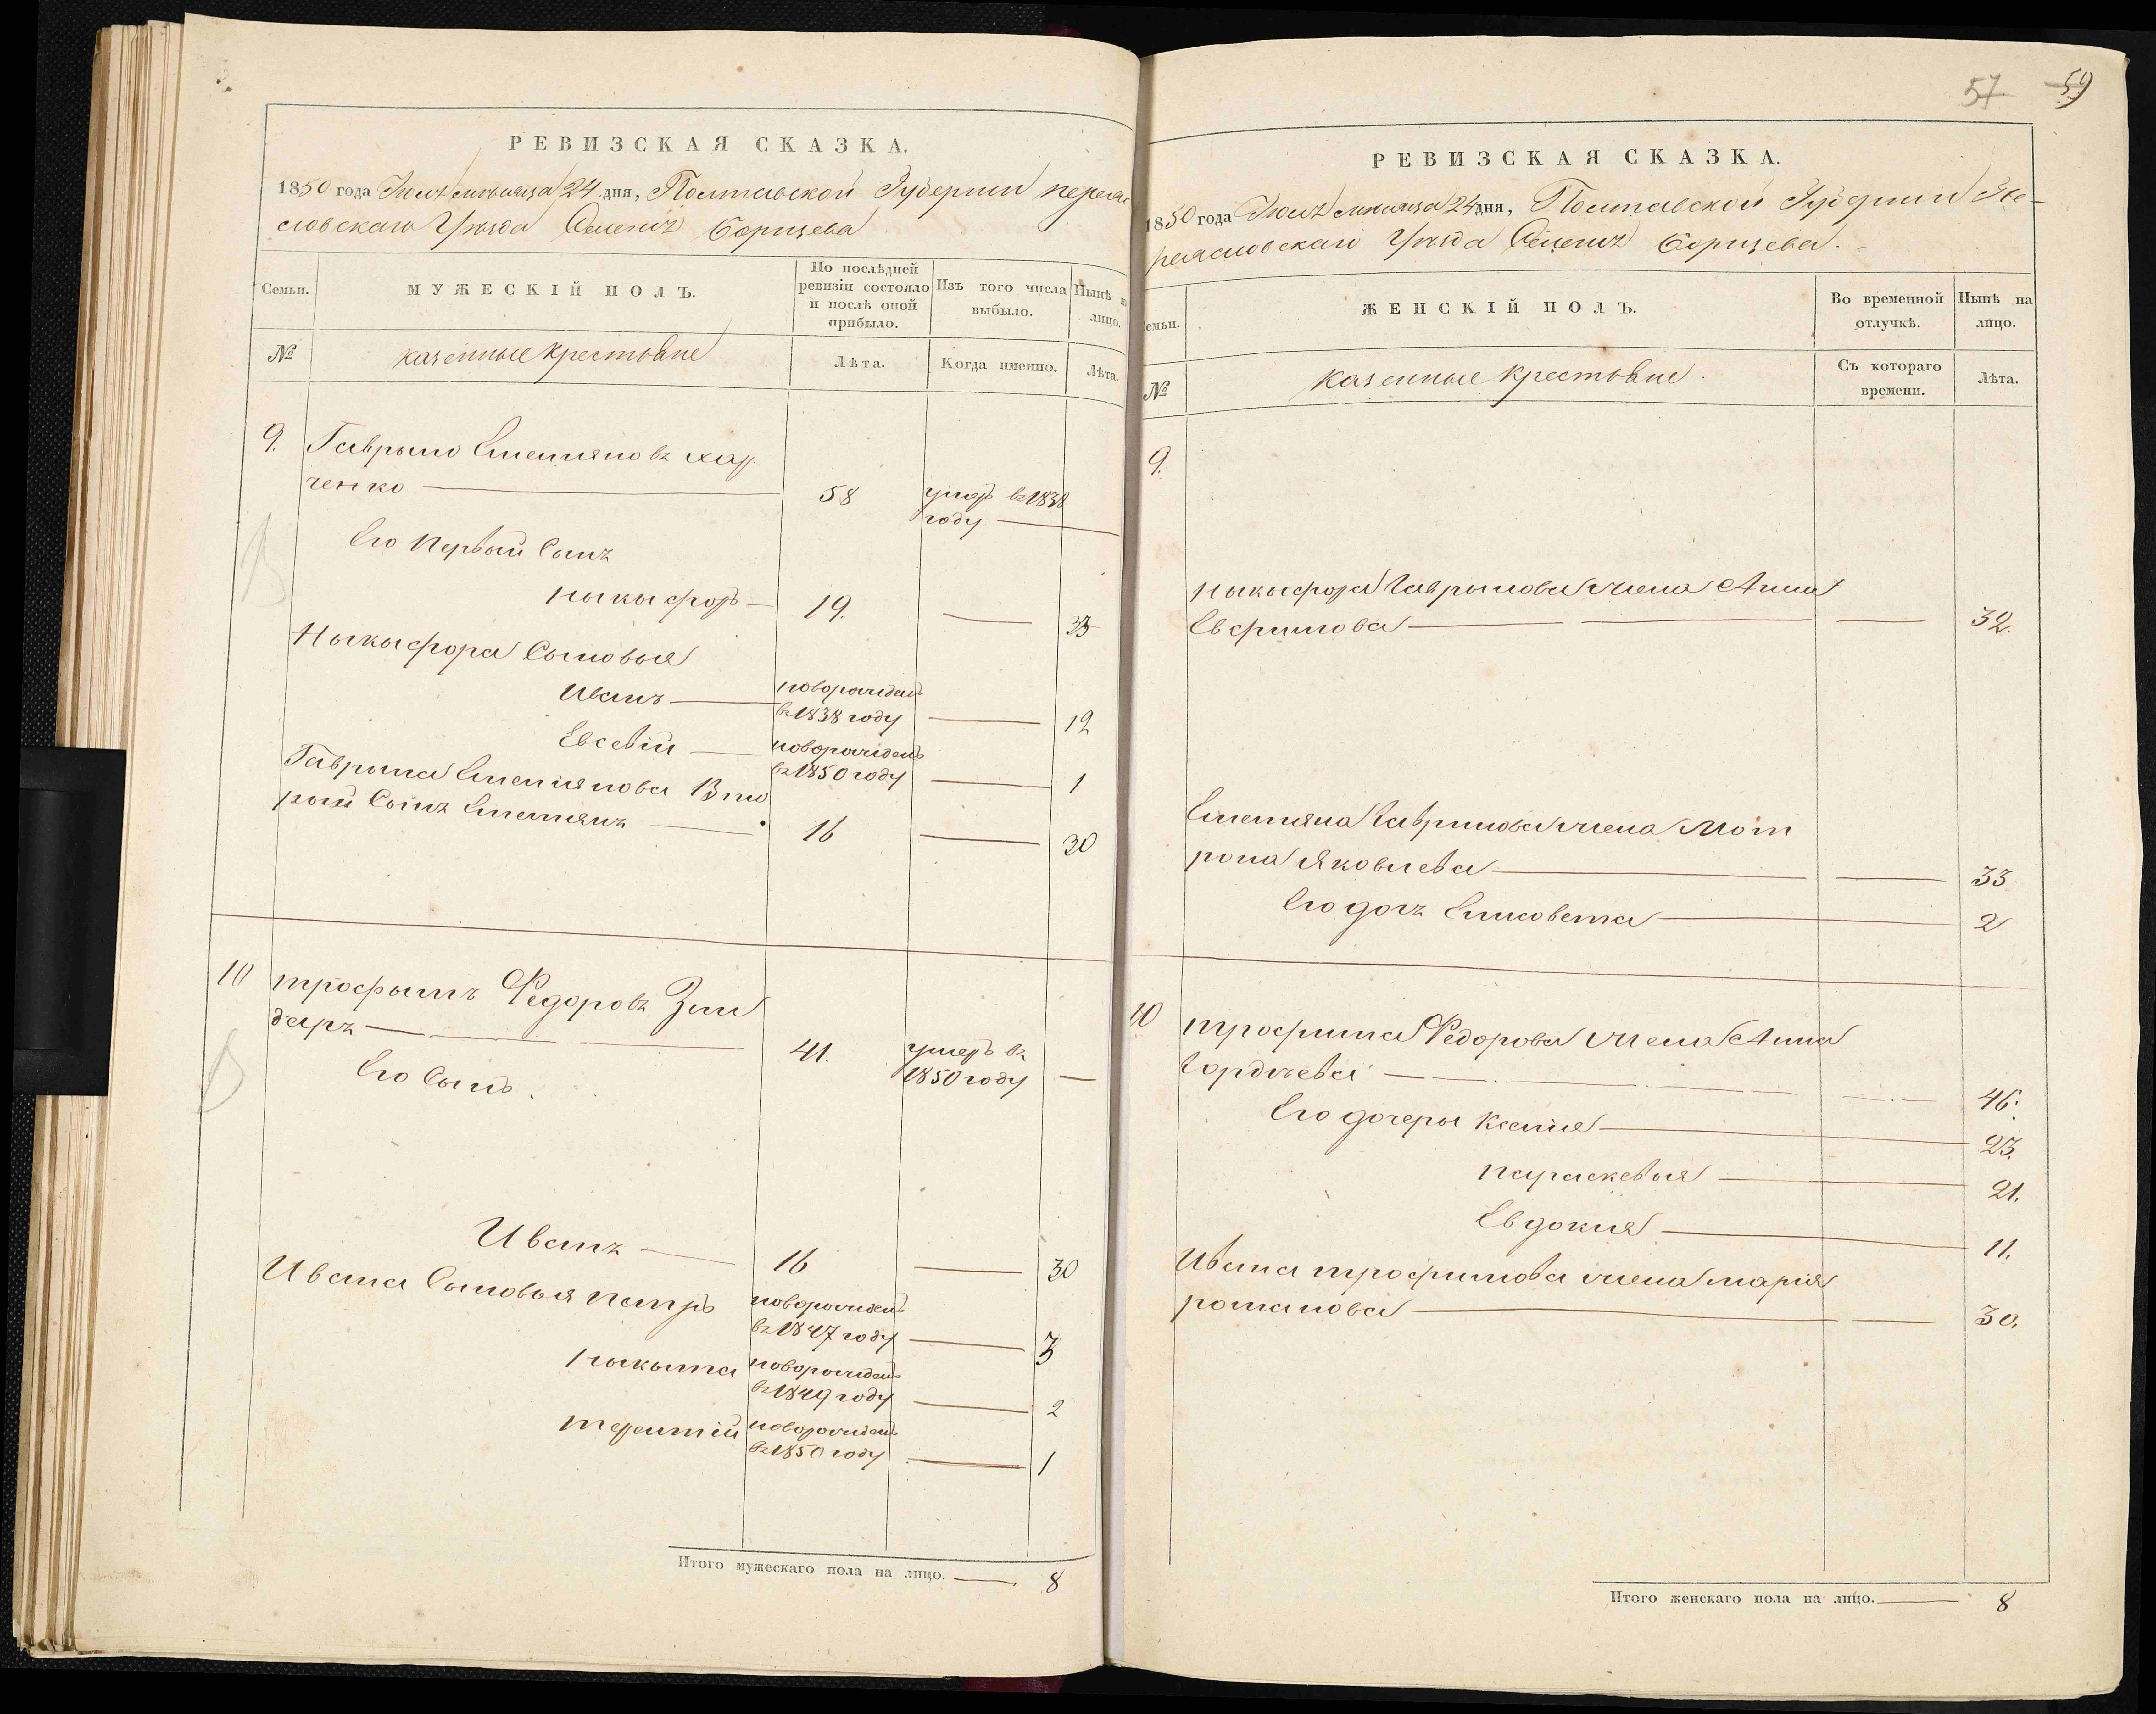 РЕВИЗСКАЯ СКАЗКА.
1850 года Июля месяца 24 дня, Полтавской Губернии переяс
словскаго Уѣзда Селения Борщева
Семьи.
МУЖЕСКІЙ ПОЛЪ.
По послѣдней ревизіи состояло и послѣ оной прибыло.
Изъ того числа выбыло.
Нынѣ на лицо.
№
казенные крестьяне
Лѣта.
Когда именно.
Лѣта.
9. Гаврыло Емельяновъ хар
ченко — 58 умеръ въ 1838
году —
Его первый Сынъ
ныкыфоръ — 19. — 33
Ныкыфора Сыновья
Иванъ — новорожденъ
въ 1838 году — 12
Евсевій — новорожденъ
въ 1850 году — 1
Гаврыла Емельянова Вто
рой Сынъ Емельянъ — 16 — 30
10 трофымъ Федоровъ Зин
даръ — 41. умеръ въ
1850 году —
Его Сынъ.
Иванъ — 16 — 30
Ивана Сыновья петръ новорожденъ
въ 1847 году — 3
ныкыта новорожденъ
въ 1849 году — 2
терентій новорожденъ
въ 1850 году — 1
Итого мужескаго пола на лицо. — 8
57 59
РЕВИЗСКАЯ СКАЗКА.
1850 года Июля месяца 24 дня, Полтавской Губернии Пе-
реясловскаго Уѣзда Селения Борщева. -
Семьи.
ЖЕНСКІЙ ПОЛЪ.
Во временной отлучкѣ.
Нынѣ на лицо.
№
казенные крестьяне.
Съ котораго времени.
Лѣта.
9.
ныкыфора Гаврылова жена Анна
Евфимова — — 32.
Емельяна Гаврилова жена Мот
рона Яковлева — — 33
Его дочь Елисовета — 2
10 трофима Федорова жена Анна
Гордѣева — — 46.
Его дочеры Ксенія — 23.
параскевыя — 21.
Евдокия — 11.
Ивана трофимова жена марія
романова — — 30.
Итого женскаго пола на лицо. — 8